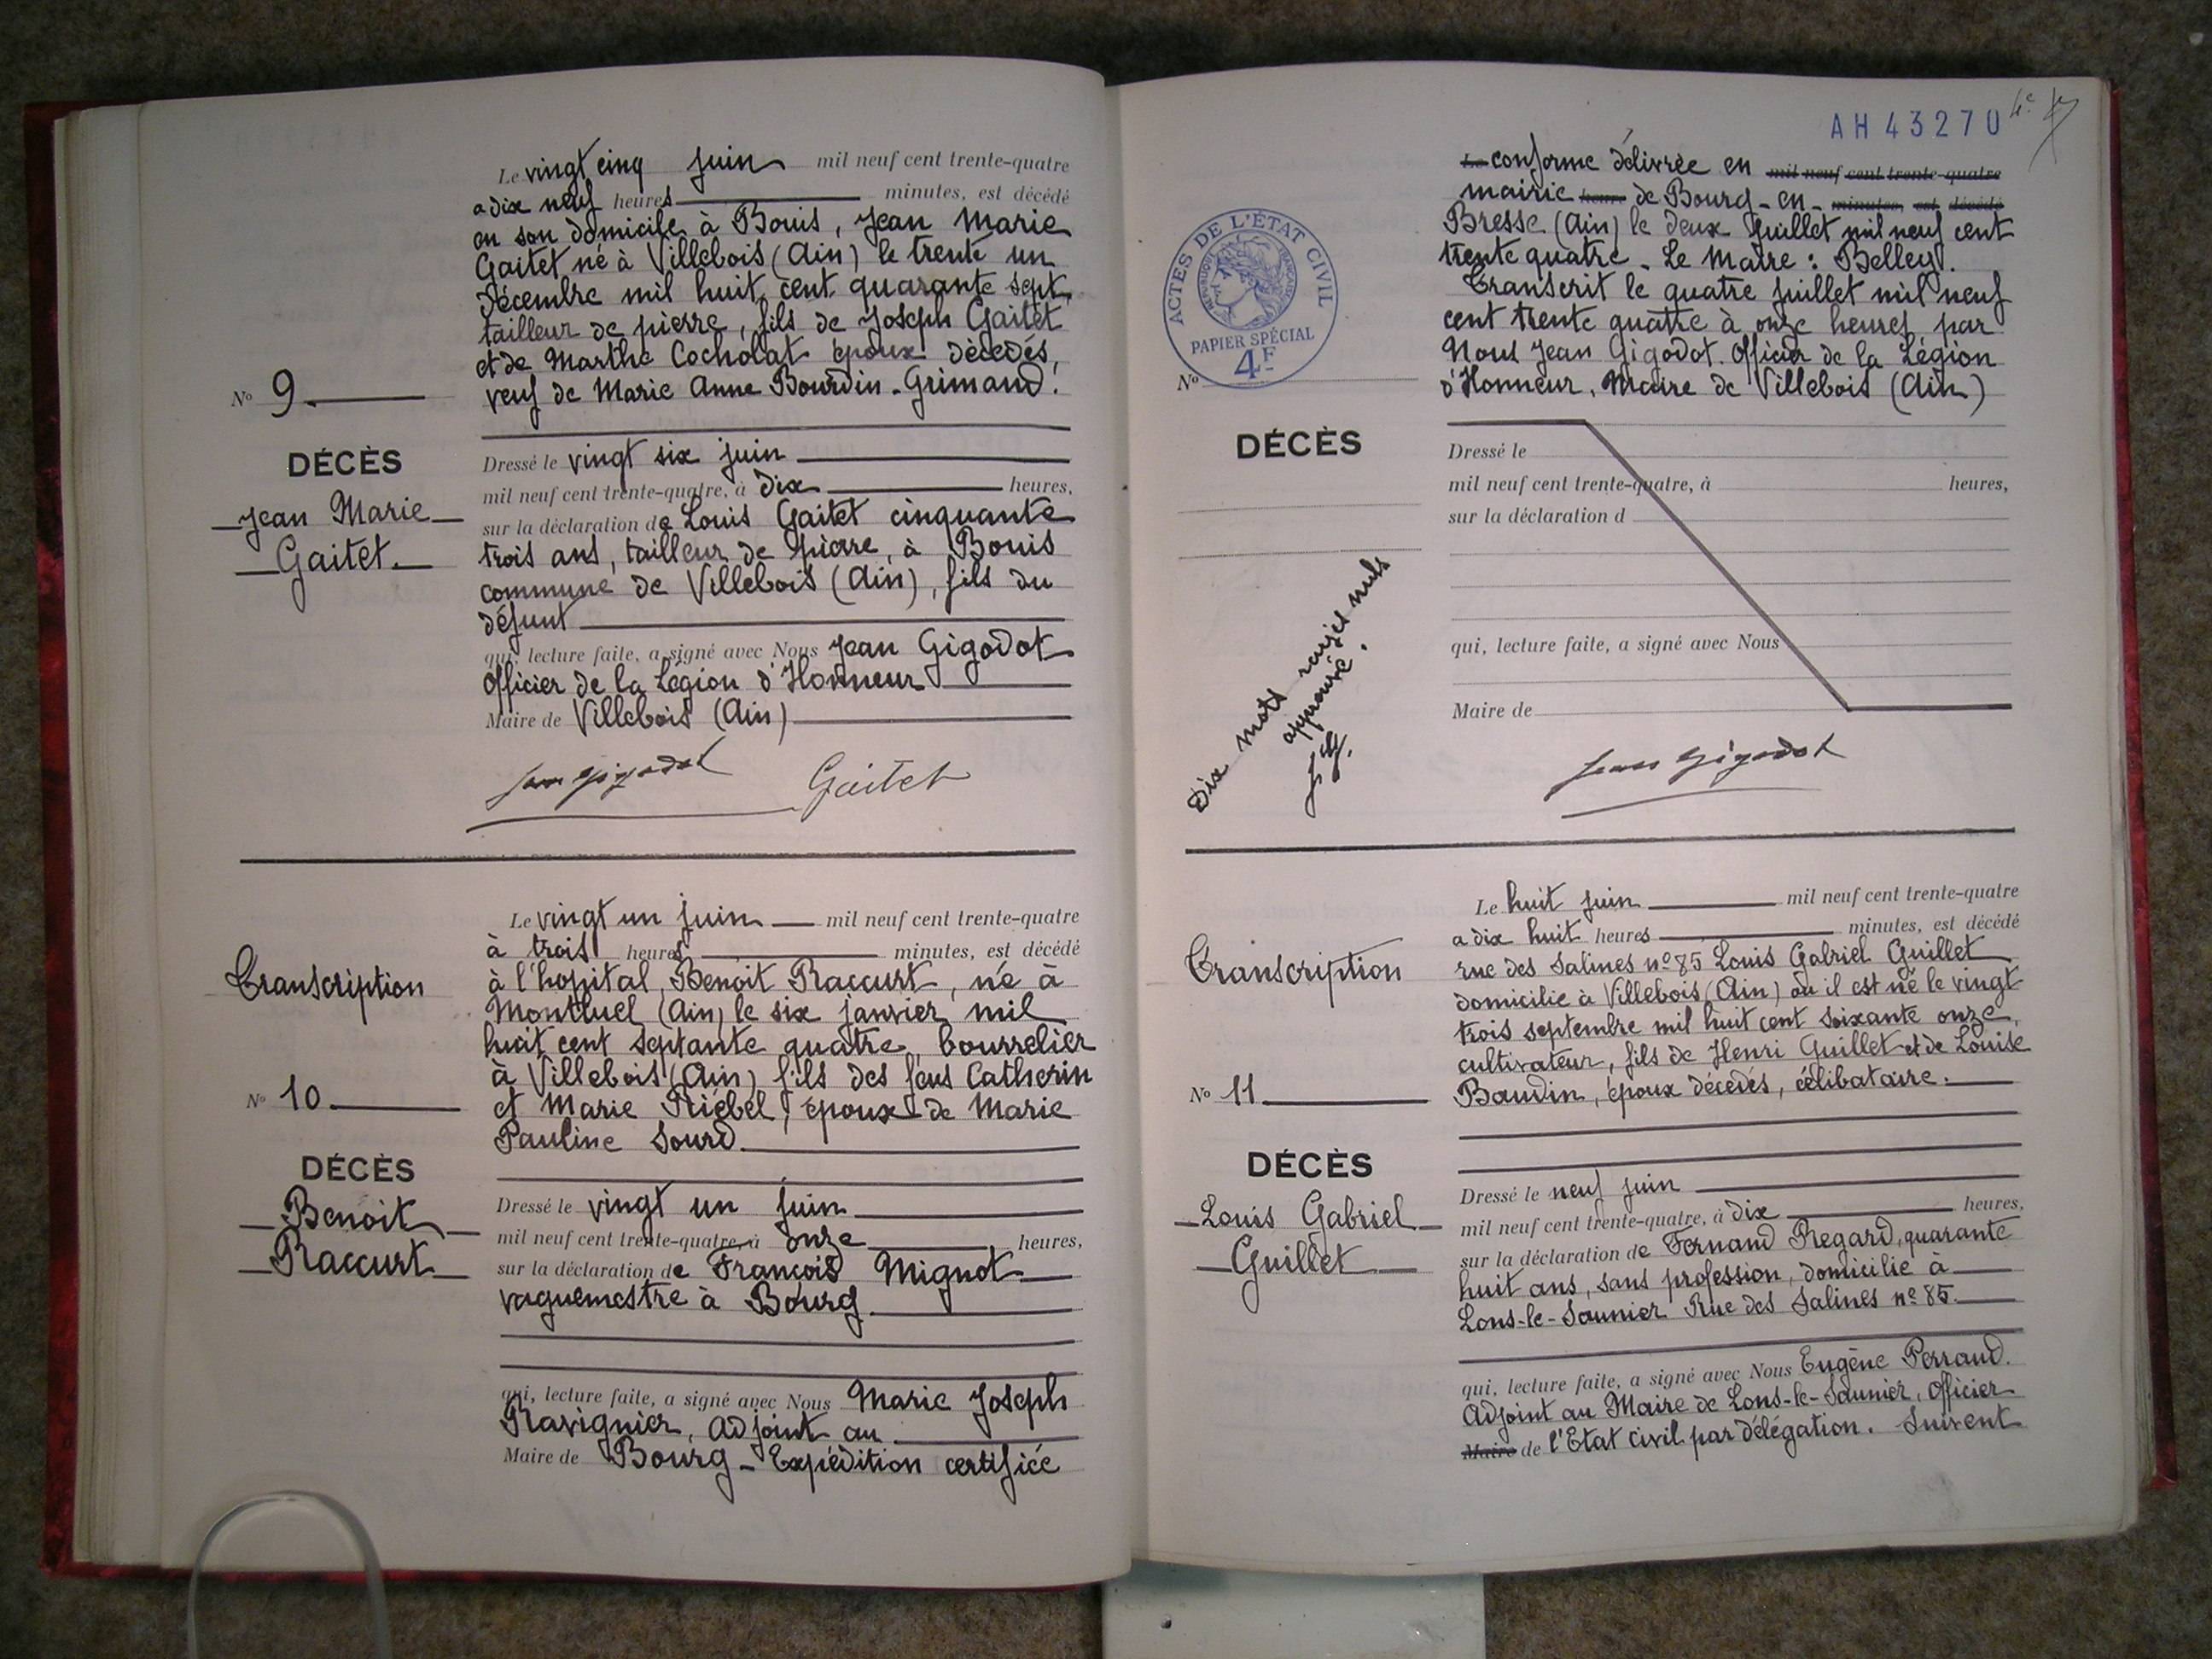 Le vingt cinq juin mil neuf cent trente-quatre
a dix neuf heures minutes, est décédé
en son domicile à Bouis, Jean Marie
Gaitet né à Villebois (Ain) le trente un
décembre mil huit cent quarante sept,
tailleur de pierre, fils de Joseph Gaitet
et de Marthe Cochobat époux décédés,
veuf de Marie Anne Bourdin-Grimaud.
N° 9
DÉCÈS
Jean Marie
Gaitet.
Dressé le vingt six juin
mil neuf cent trente-quatre, à dix heures,
sur la déclaration de Louis Gaitet cinquante
trois ans, tailleur de pierre, à Bouis
commune de Villebois (Ain), fils du
défunt
qui, lecture faite, a signé avec Nous Jean Gigodot
Officier de la Légion d'Honneur
Maire de Villebois (Ain)
Jean Gigodot Gaitet
Transcription
N° 10
DÉCÈS
Benoit
Raccurt
Le vingt un juin mil neuf cent trente-quatre
à trois heures minutes, est décédé
à l'hopital, Benoit Raccurt, né à
Montluel (Ain) le six janvier mil
huit cent septante quatre, bourrelier
à Villebois (Ain) fils des feus Catherin
et Marie Riébel, époux de Marie
Pauline Sourd.
Dressé le vingt un juin
mil neuf cent trente-quatre, à onze heures,
sur la déclaration de François Mignot
vaguemestre à Bourg.
qui, lecture faite, a signé avec Nous Marie Joseph
Ravignier, Adjoint au
Maire de Bourg - Expédition certifiée
AH 43270
ACTES DE L'ÉTAT CIVIL
RÉPUBLIQUE FRANÇAISE
PAPIER SPÉCIAL
4F
Le conforme délivrée en mil neuf cent trente-quatre
mairie heures de Bourg-en- minutes, est décédé
Bresse (Ain) le deux Juillet mil neuf cent
trente quatre. Le Maire : Belley.
Transcrit le quatre juillet mil neuf
cent trente quatre à onze heures par
Nous Jean Gigodot Officier de la Légion
d'Honneur, Maire de Villebois (Ain)
N°
DÉCÈS
Dressé le
mil neuf cent trente-quatre, à heures,
sur la déclaration d
qui, lecture faite, a signé avec Nous
Maire de
Dix mots rayés nuls
approuvé.
J.G.
Jean Gigodot
Transcription
N° 11
DÉCÈS
Louis Gabriel
Guillet
Le huit juin mil neuf cent trente-quatre
a dix huit heures minutes, est décédé
rue des Salines n° 85 Louis Gabriel Guillet
domicilié à Villebois (Ain) où il est né le vingt
trois septembre mil huit cent soixante onze,
cultivateur, fils de Henri Guillet et de Louise
Baudin, époux décédés, célibataire.
Dressé le neuf juin
mil neuf cent trente-quatre, à dix heures,
sur la déclaration de Fernand Regard, quarante
huit ans, sans profession, domicilié à
Lons-le-Saunier Rue des Salines n° 85.
qui, lecture faite, a signé avec Nous Eugène Perraud.
Adjoint au Maire de Lons-le-Saunier, Officier
Maire de l'Etat Civil par délégation. Suivent